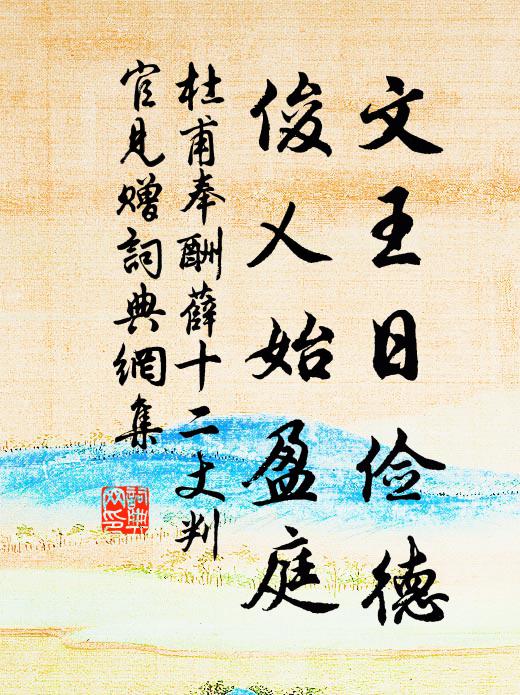 文王日俭德
俊乂始盈庭
杜甫奉酬薛十二丈判
官见赠詞典網集
詞典网印